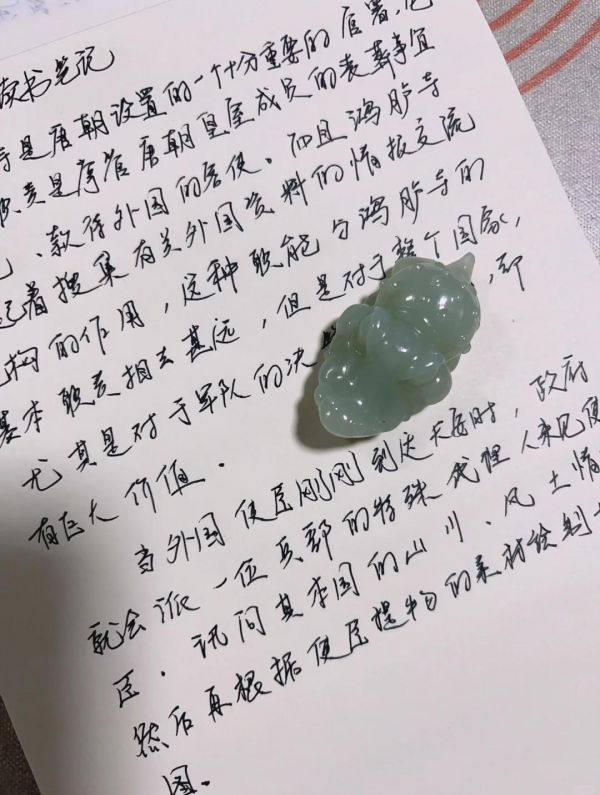 读书笔记
寺是唐朝设置的一个十分重要的官署,它
职责是序管唐朝皇室成员的丧葬事宜
、款待外国的客使。而且鸿胪寺
起着搜集有关外国资料的情报交流
机构的作用,这种职能与鸿胪寺的
基本职责相去甚远,但是对于整个国家,
尤其是对于军队的决,却
有巨大价值。
当外国使臣刚刚到达长安时,政府
就会派一位兵部的特殊代理人来见使
臣。讯问其本国的山川、风土情
然后再根据使臣提物的素材绘制
图。